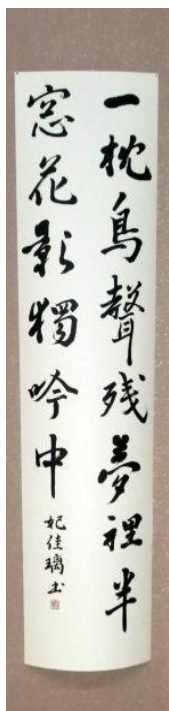 一枕鳥聲残夢裡半
窓花影獨吟中
妃佳璃书